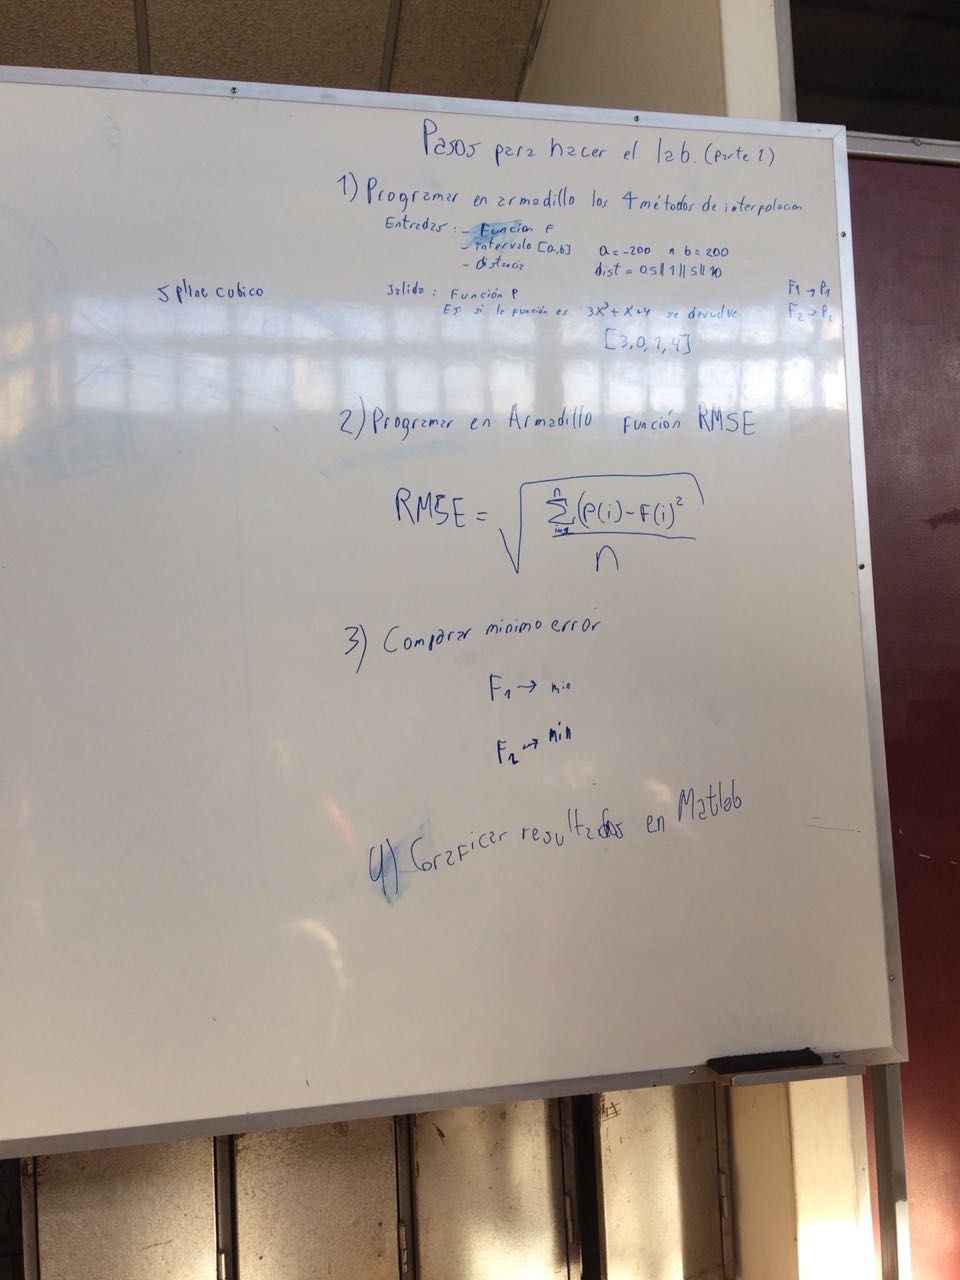 Pasos para hacer el lab. (parte 1)
1) Programar en armadillo los 4 métodos de interpolacion
Entradas : - Funcion F
- intervalo [a,b] a = -200 ∧ b = 200
- distancia dist = 0.5 || 1 || 5 || 10
Spline cubico
Salida : Función P
Ej: si la función es 3x³ + x + 4 se devuelve
[3, 0, 1, 4]
F1 → P1
F2 → P2
2) Programar en Armadillo Función RMSE
RMSE = √ Σ (P(i) - F(i)² / n
3) Comparar minimo error
F1 → min
F2 → min
4) Graficar resultados en Matlab